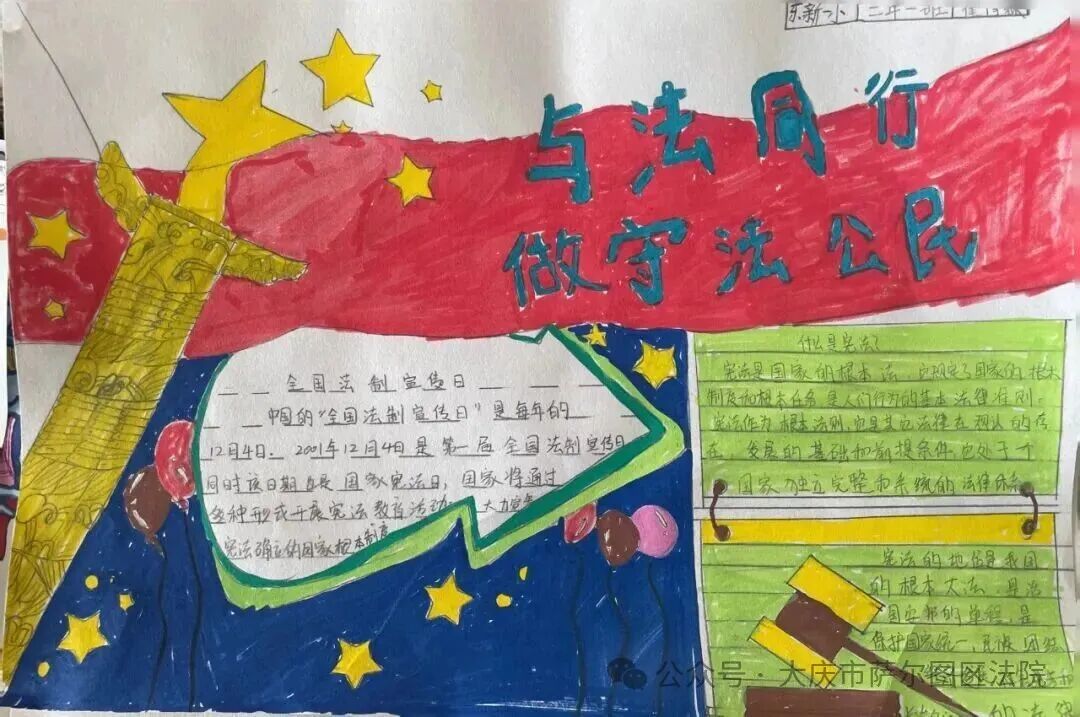 东新一小 二年一班
与法同行
做守法公民
全国法制宣传日
中国的“全国法制宣传日”是每年的
12月4日。2001年12月4日是第一届全国法制宣传日
同时该日期也是国家宪法日，国家将通过
各种形式开展宪法教育活动 大力宣
宪法确立的国家根本制度
什么是宪法？
宪法是国家的根本法 它规定了国家的根本
制度和根本任务是人们行为的基本法律准则.
宪法作为根本法则它是其它法律在观认的存
在、发展的基础和前提条件也处于个
国家独立完整而系统的法律体系
宪法的地位是我国
的根本大法，是治
国安邦的总章程，是
保护国家统一，民族团结
的法律
公众号·大庆市萨尔图区法院